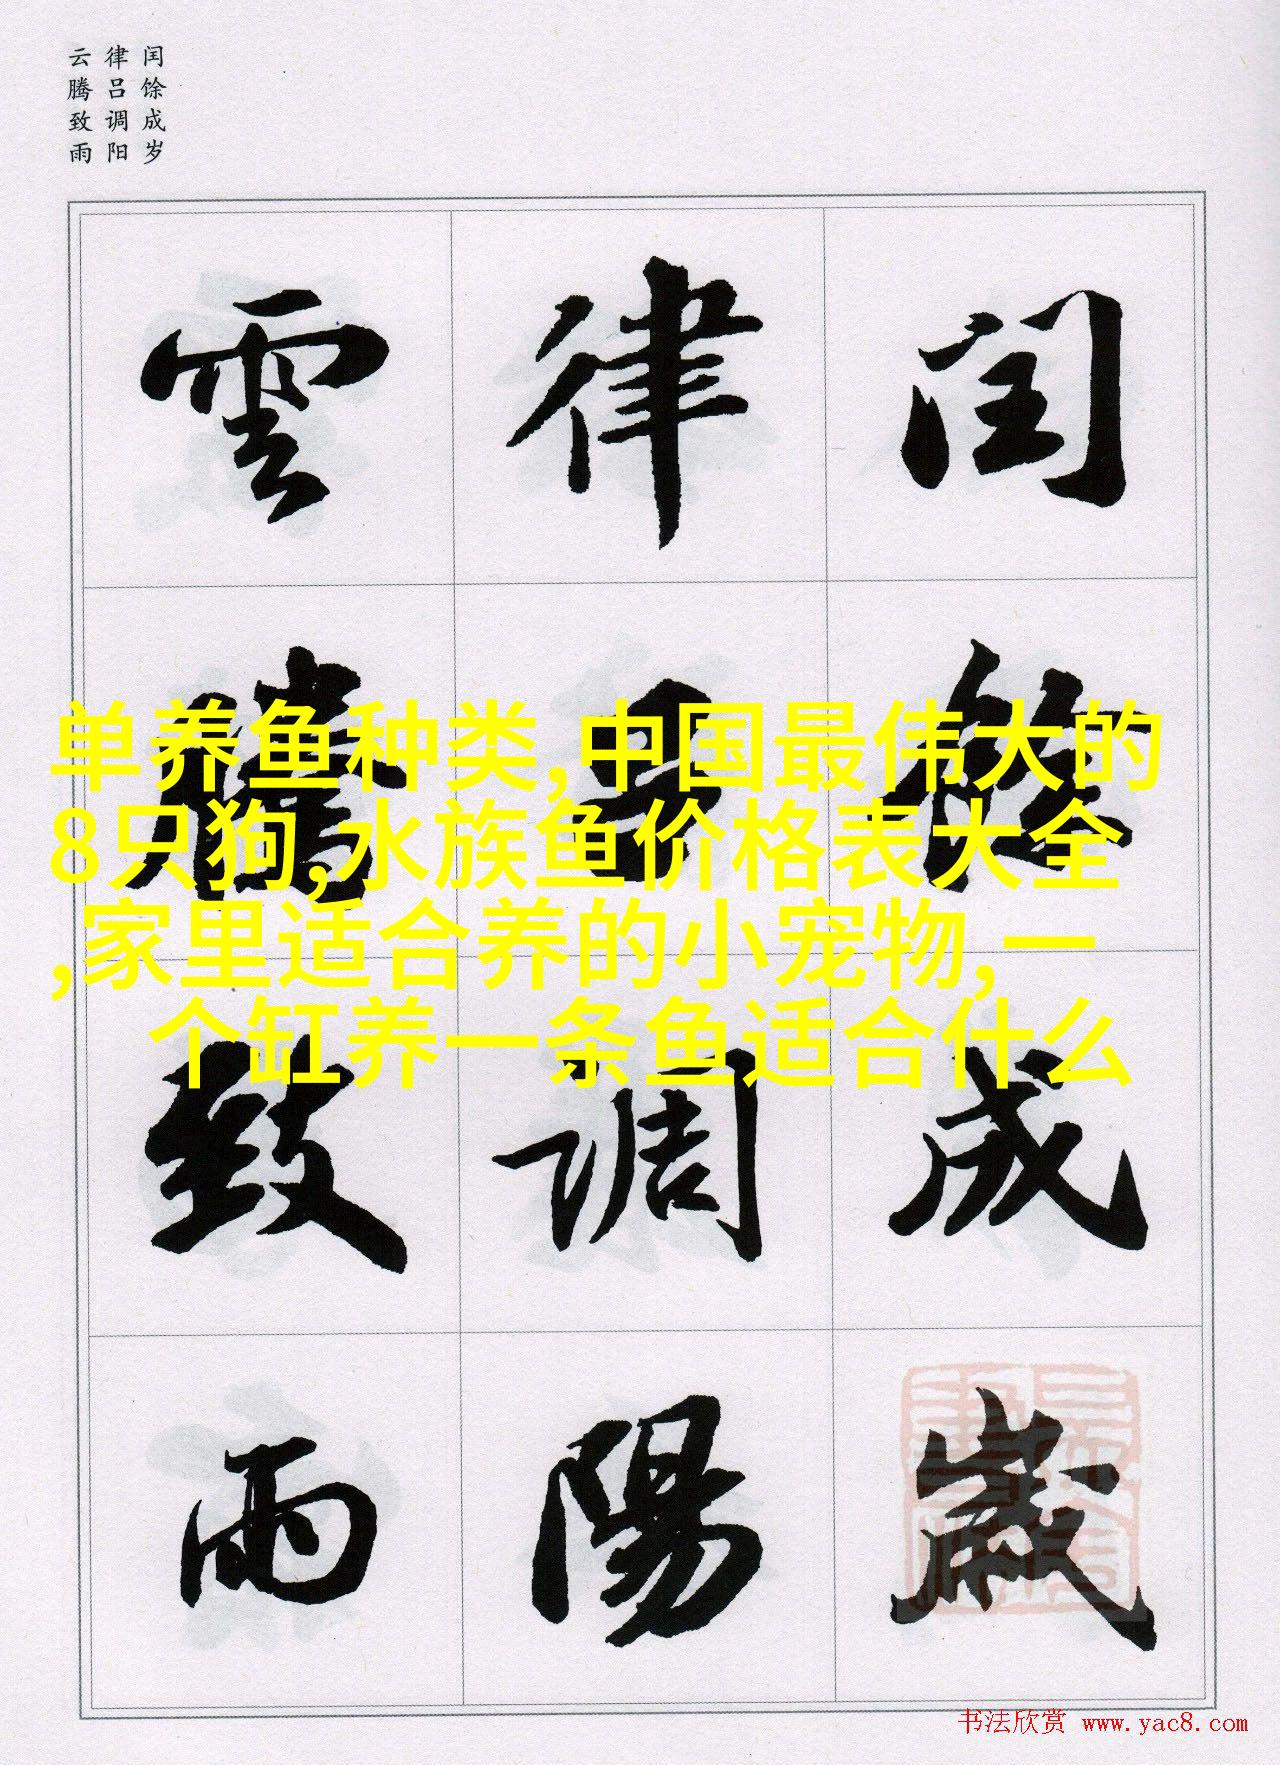 闰馀成岁
律吕调阳
云腾致雨
閏餘成歲
律吕調陽
雲騰致雨
单养鱼种类,中国最伟大的
8只狗,水族鱼价格表大全
,家里适合养的小宠物,一
个缸养一条鱼适合什么
书法欣赏 www.yac8.com